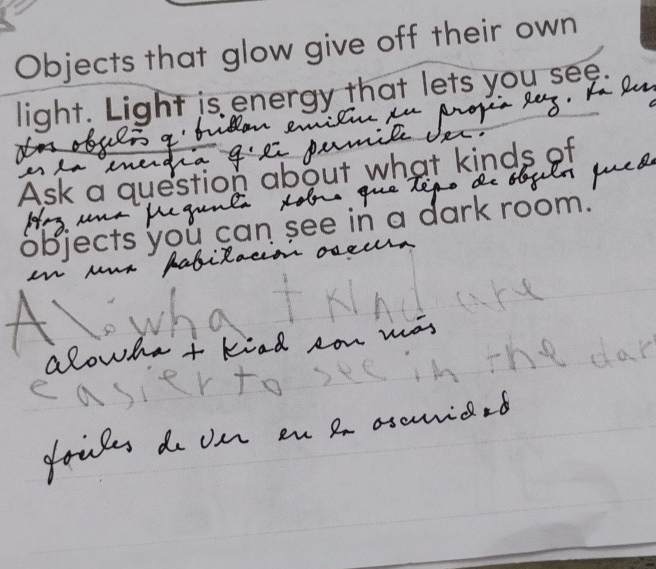 Objects that glow give off their own
light. Light is energy that lets you see.
Los objetos q' brillan emiten su propia luz. La luz
es la energía q' te permite ver.
Ask a question about what kinds of
Haz una pregunta sobre que tipo de objetos puede
objects you can see in a dark room.
en una habitación oscura
Alowha t Kind are
alowha + Kiad son más
easier to see in the dar
faciles de ver en la oscuridad